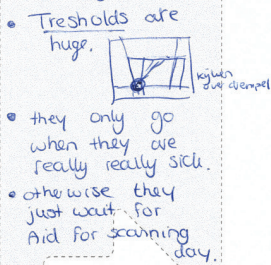 • Tresholds are
huge.
kijken
over drempel
• they only go
when they are
really really sick.
• otherwise they
just wait for
Aid for scanning
day.